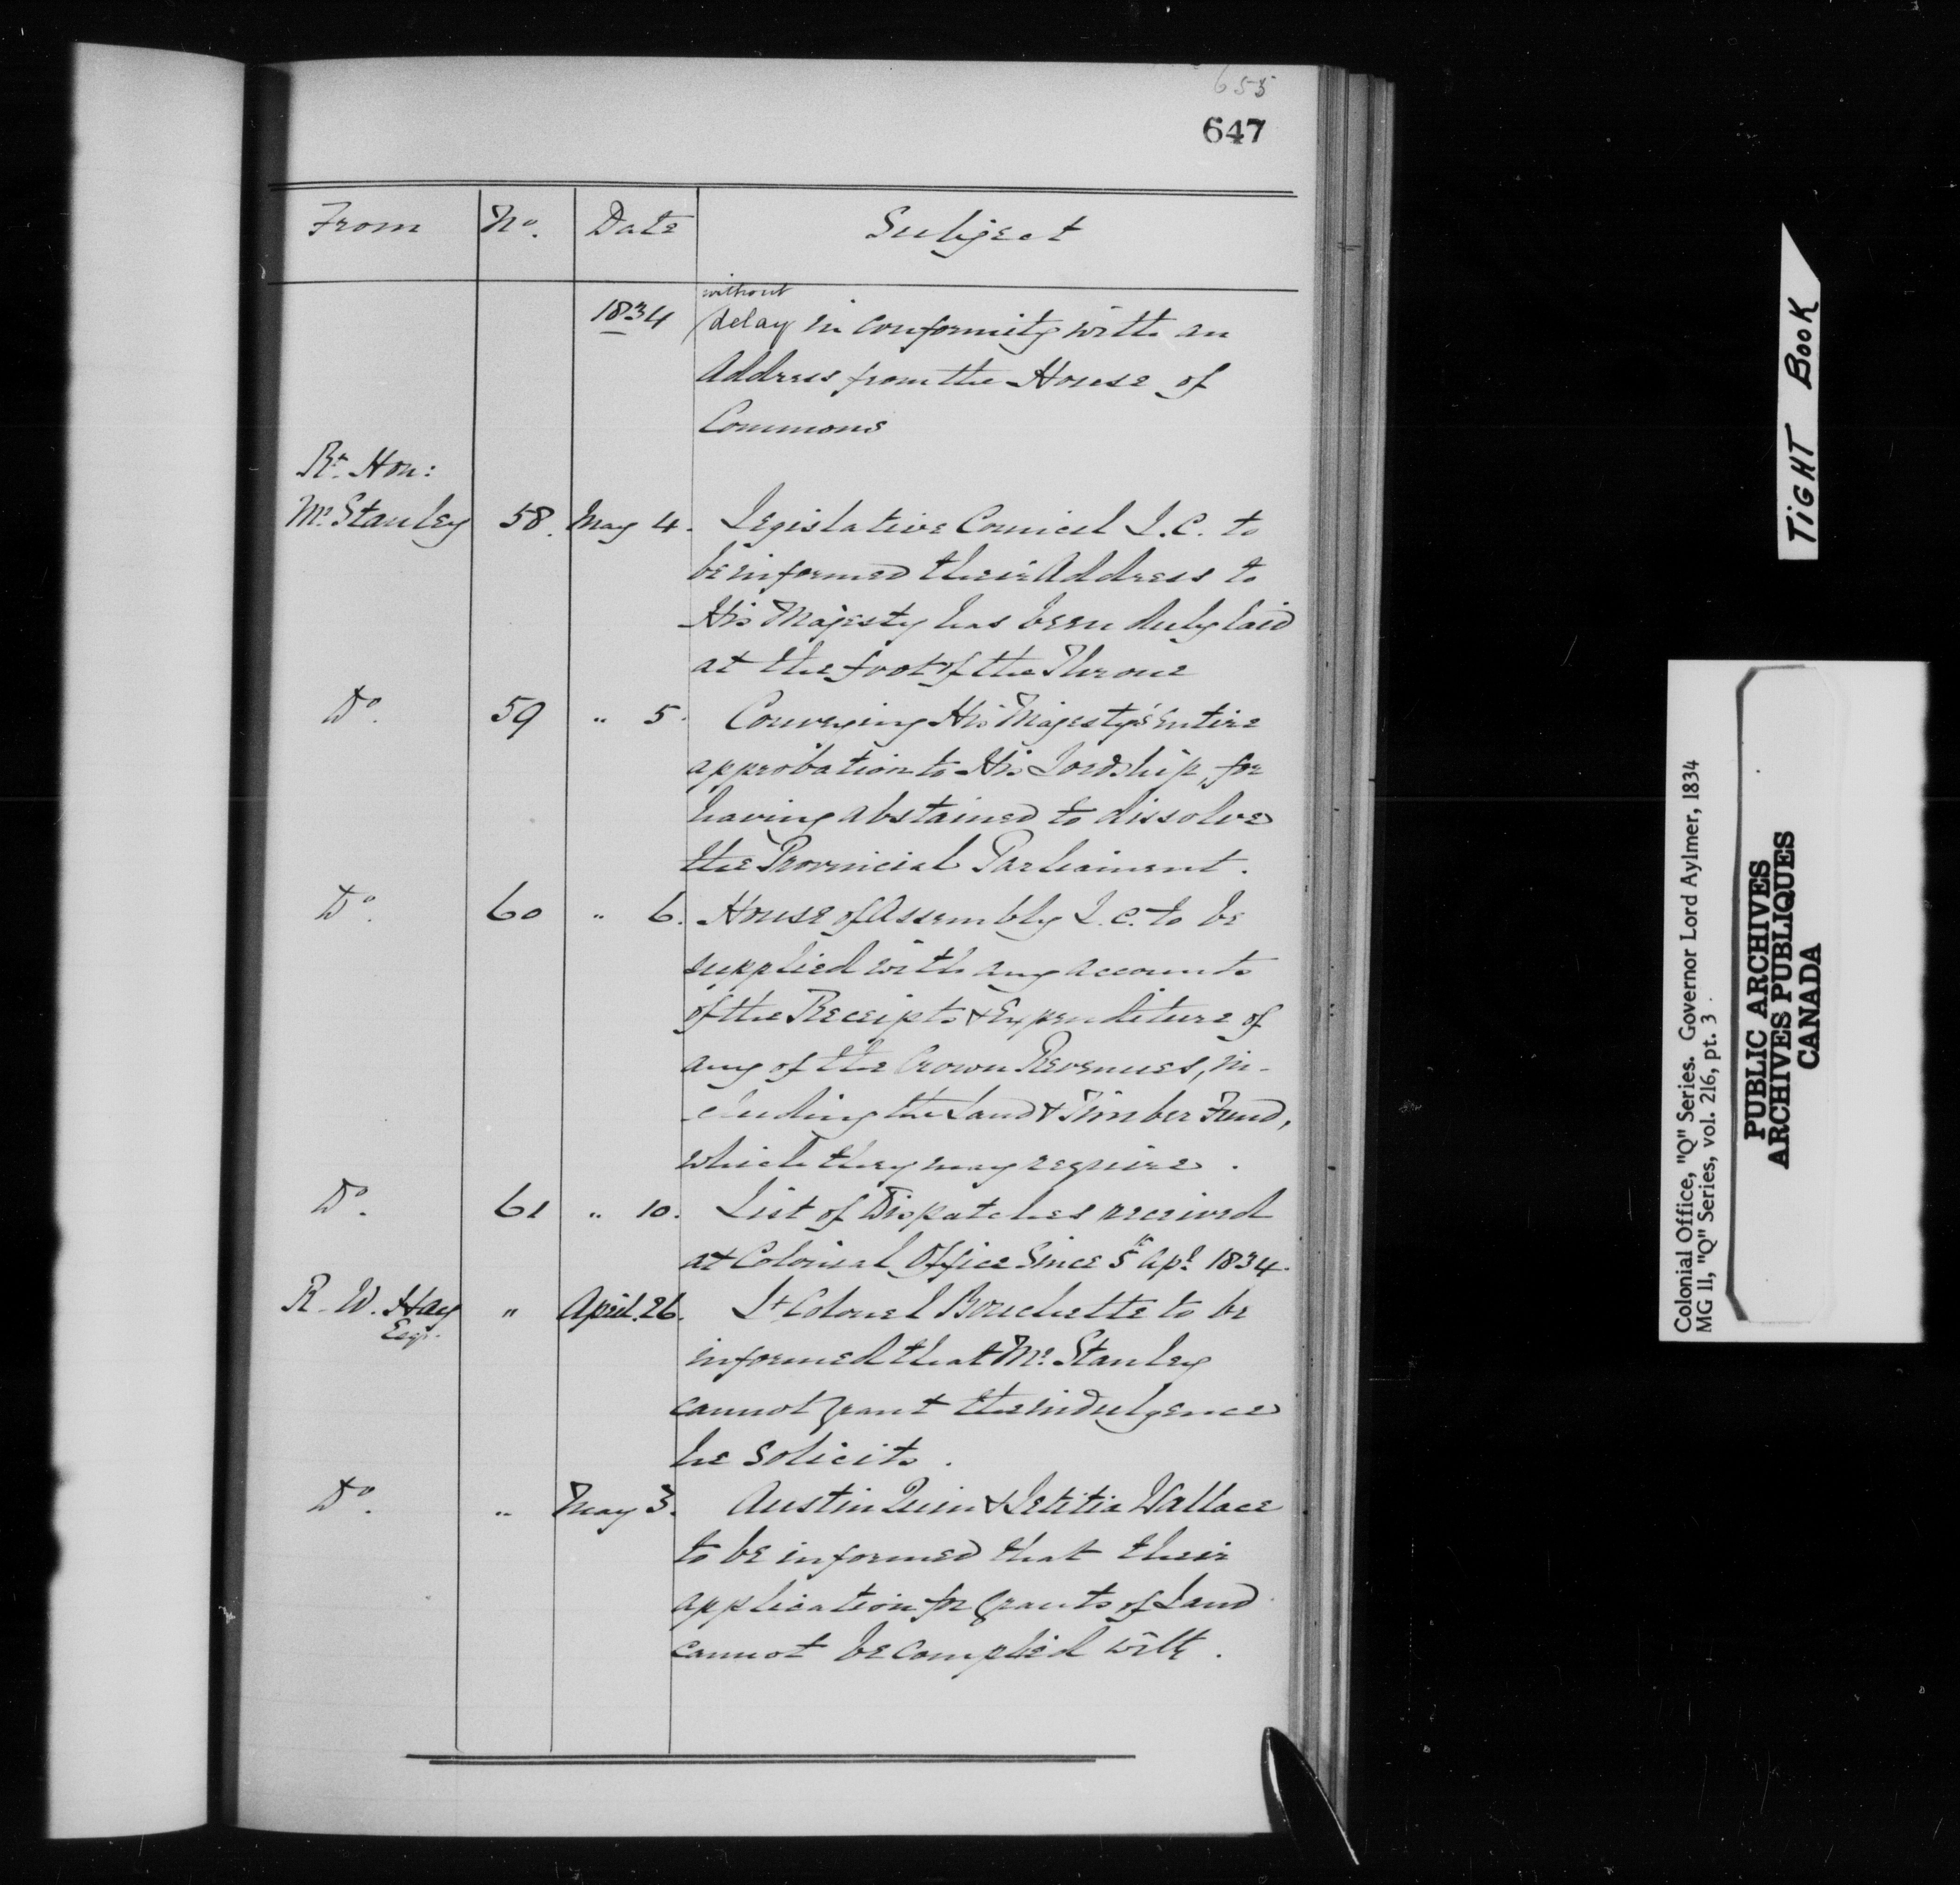 655
647
From No. Date Subject
without
1834 delay in conformity with an
Address from the House of
Commons
Rt. Hon:
Mr. Stanley 58. May 4. Legislative Council L.C. to
be informed their Address to
His Majesty has been duly laid
at the foot of the Throne
Do. 59 " 5. Conveying His Majesty's entire
approbation to His Lordship, for
having abstained to dissolve
the Provincial Parliament.
Do. 60 " 6. House of Assembly L.C. to be
supplied with any accounts
of the Receipts & Expenditure of
any of the Crown Revenues, in-
cluding the Land & Timber Fund,
which they may require.
Do. 61 " 10. List of Dispatches received
at Colonial Office since 5th Apl. 1834.
R. W. Hay " April 26. Lt Colonel Bouchette to be
Esqr.
informed that Mr. Stanley
cannot grant the indulgence
he solicits.
Do. " May 3. Austin Quin & Letitia Wallace
to be informed that their
application for grants of Land
cannot be complied with.
TIGHT BOOK
Colonial Office, "Q" Series. Governor Lord Aylmer, 1834
MG 11, "Q" Series, vol. 216, pt. 3
PUBLIC ARCHIVES
ARCHIVES PUBLIQUES
CANADA